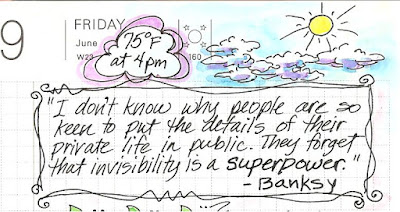 9
FRIDAY
June
W23
160
75°F
at 4pm
"I don't know why people are so
keen to put the details of their
private life in public. They forget
that invisibility is a superpower."
- Banksy